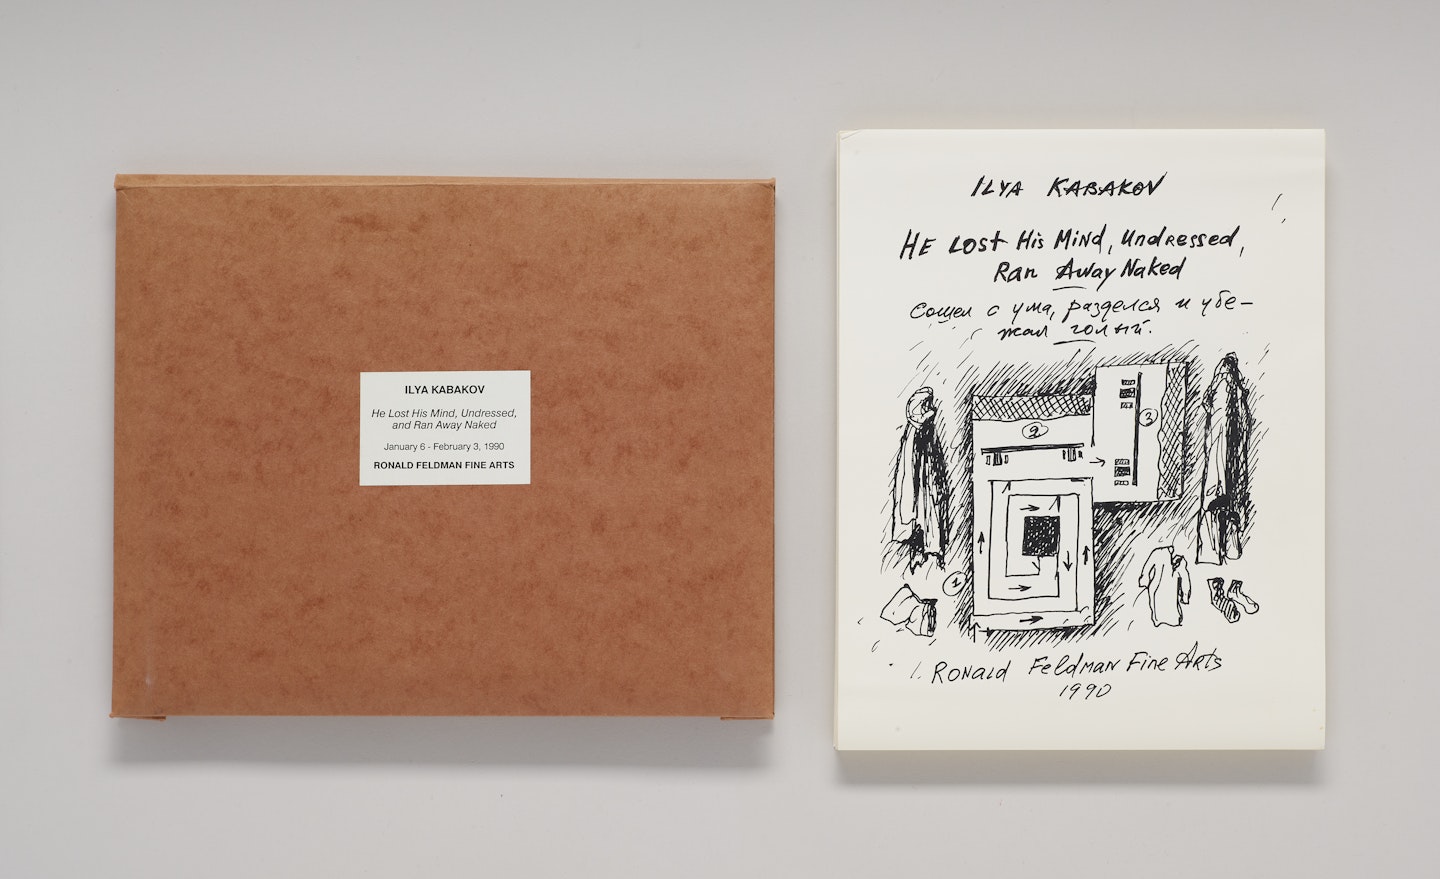 ILYA KABAKOV
He Lost His Mind, Undressed,
and Ran Away Naked
January 6 - February 3, 1990
RONALD FELDMAN FINE ARTS
ILYA KABAKOV
HE LOST His MiNd, UndRessed,
Ran Away Naked
Сошел с ума, разделся и убе-
жал голый.
2
3
1
RONALd FeLdMAN FiNe ARTs
1990